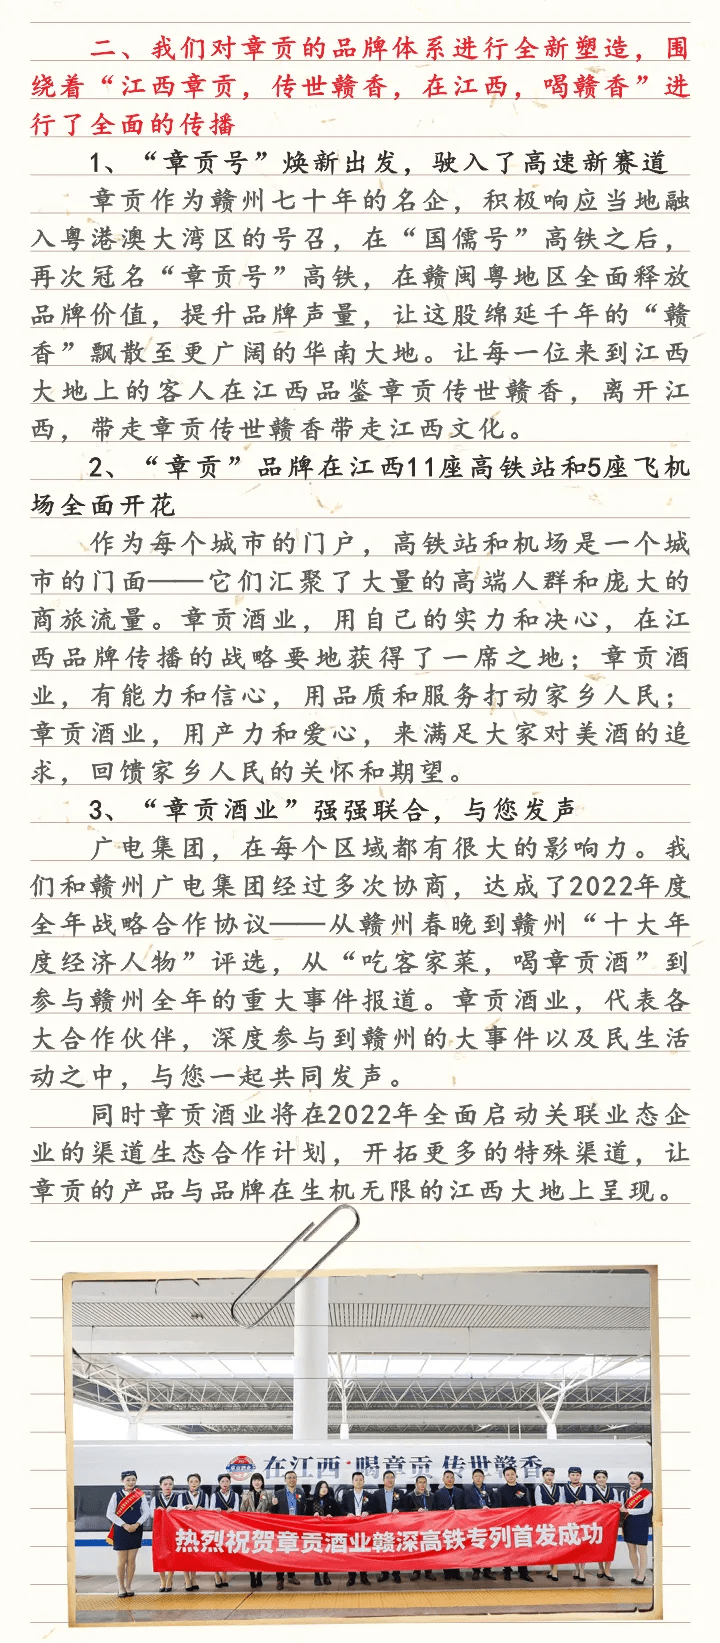 二、我们对章贡的品牌体系进行全新塑造，围
绕着“江西章贡，传世赣香，在江西，喝赣香”进
行了全面的传播
1、“章贡号”焕新出发，驶入了高速新赛道
章贡作为赣州七十年的名企，积极响应当地融
入粤港澳大湾区的号召，在“国儒号”高铁之后，
再次冠名“章贡号”高铁，在赣闽粤地区全面释放
品牌价值，提升品牌声量，让这股绵延千年的“赣
香”飘散至更广阔的华南大地。让每一位来到江西
大地上的客人在江西品鉴章贡传世赣香，离开江
西，带走章贡传世赣香带走江西文化。
2、“章贡”品牌在江西11座高铁站和5座飞机
场全面开花
作为每个城市的门户，高铁站和机场是一个城
市的门面——它们汇聚了大量的高端人群和庞大的
商旅流量。章贡酒业，用自己的实力和决心，在江
西品牌传播的战略要地获得了一席之地；章贡酒
业，有能力和信心，用品质和服务打动家乡人民；
章贡酒业，用产力和爱心，来满足大家对美酒的追
求，回馈家乡人民的关怀和期望。
3、“章贡酒业”强强联合，与您发声
广电集团，在每个区域都有很大的影响力。我
们和赣州广电集团经过多次协商，达成了2022年度
全年战略合作协议——从赣州春晚到赣州“十大年
度经济人物”评选，从“吃客家菜，喝章贡酒”到
参与赣州全年的重大事件报道。章贡酒业，代表各
大合作伙伴，深度参与到赣州的大事件以及民生活
动之中，与您一起共同发声。
同时章贡酒业将在2022年全面启动关联业态企
业的渠道生态合作计划，开拓更多的特殊渠道，让
章贡的产品与品牌在生机无限的江西大地上呈现。
在江西·喝章贡 传世赣香
热烈祝贺章贡酒业赣深高铁专列首发成功